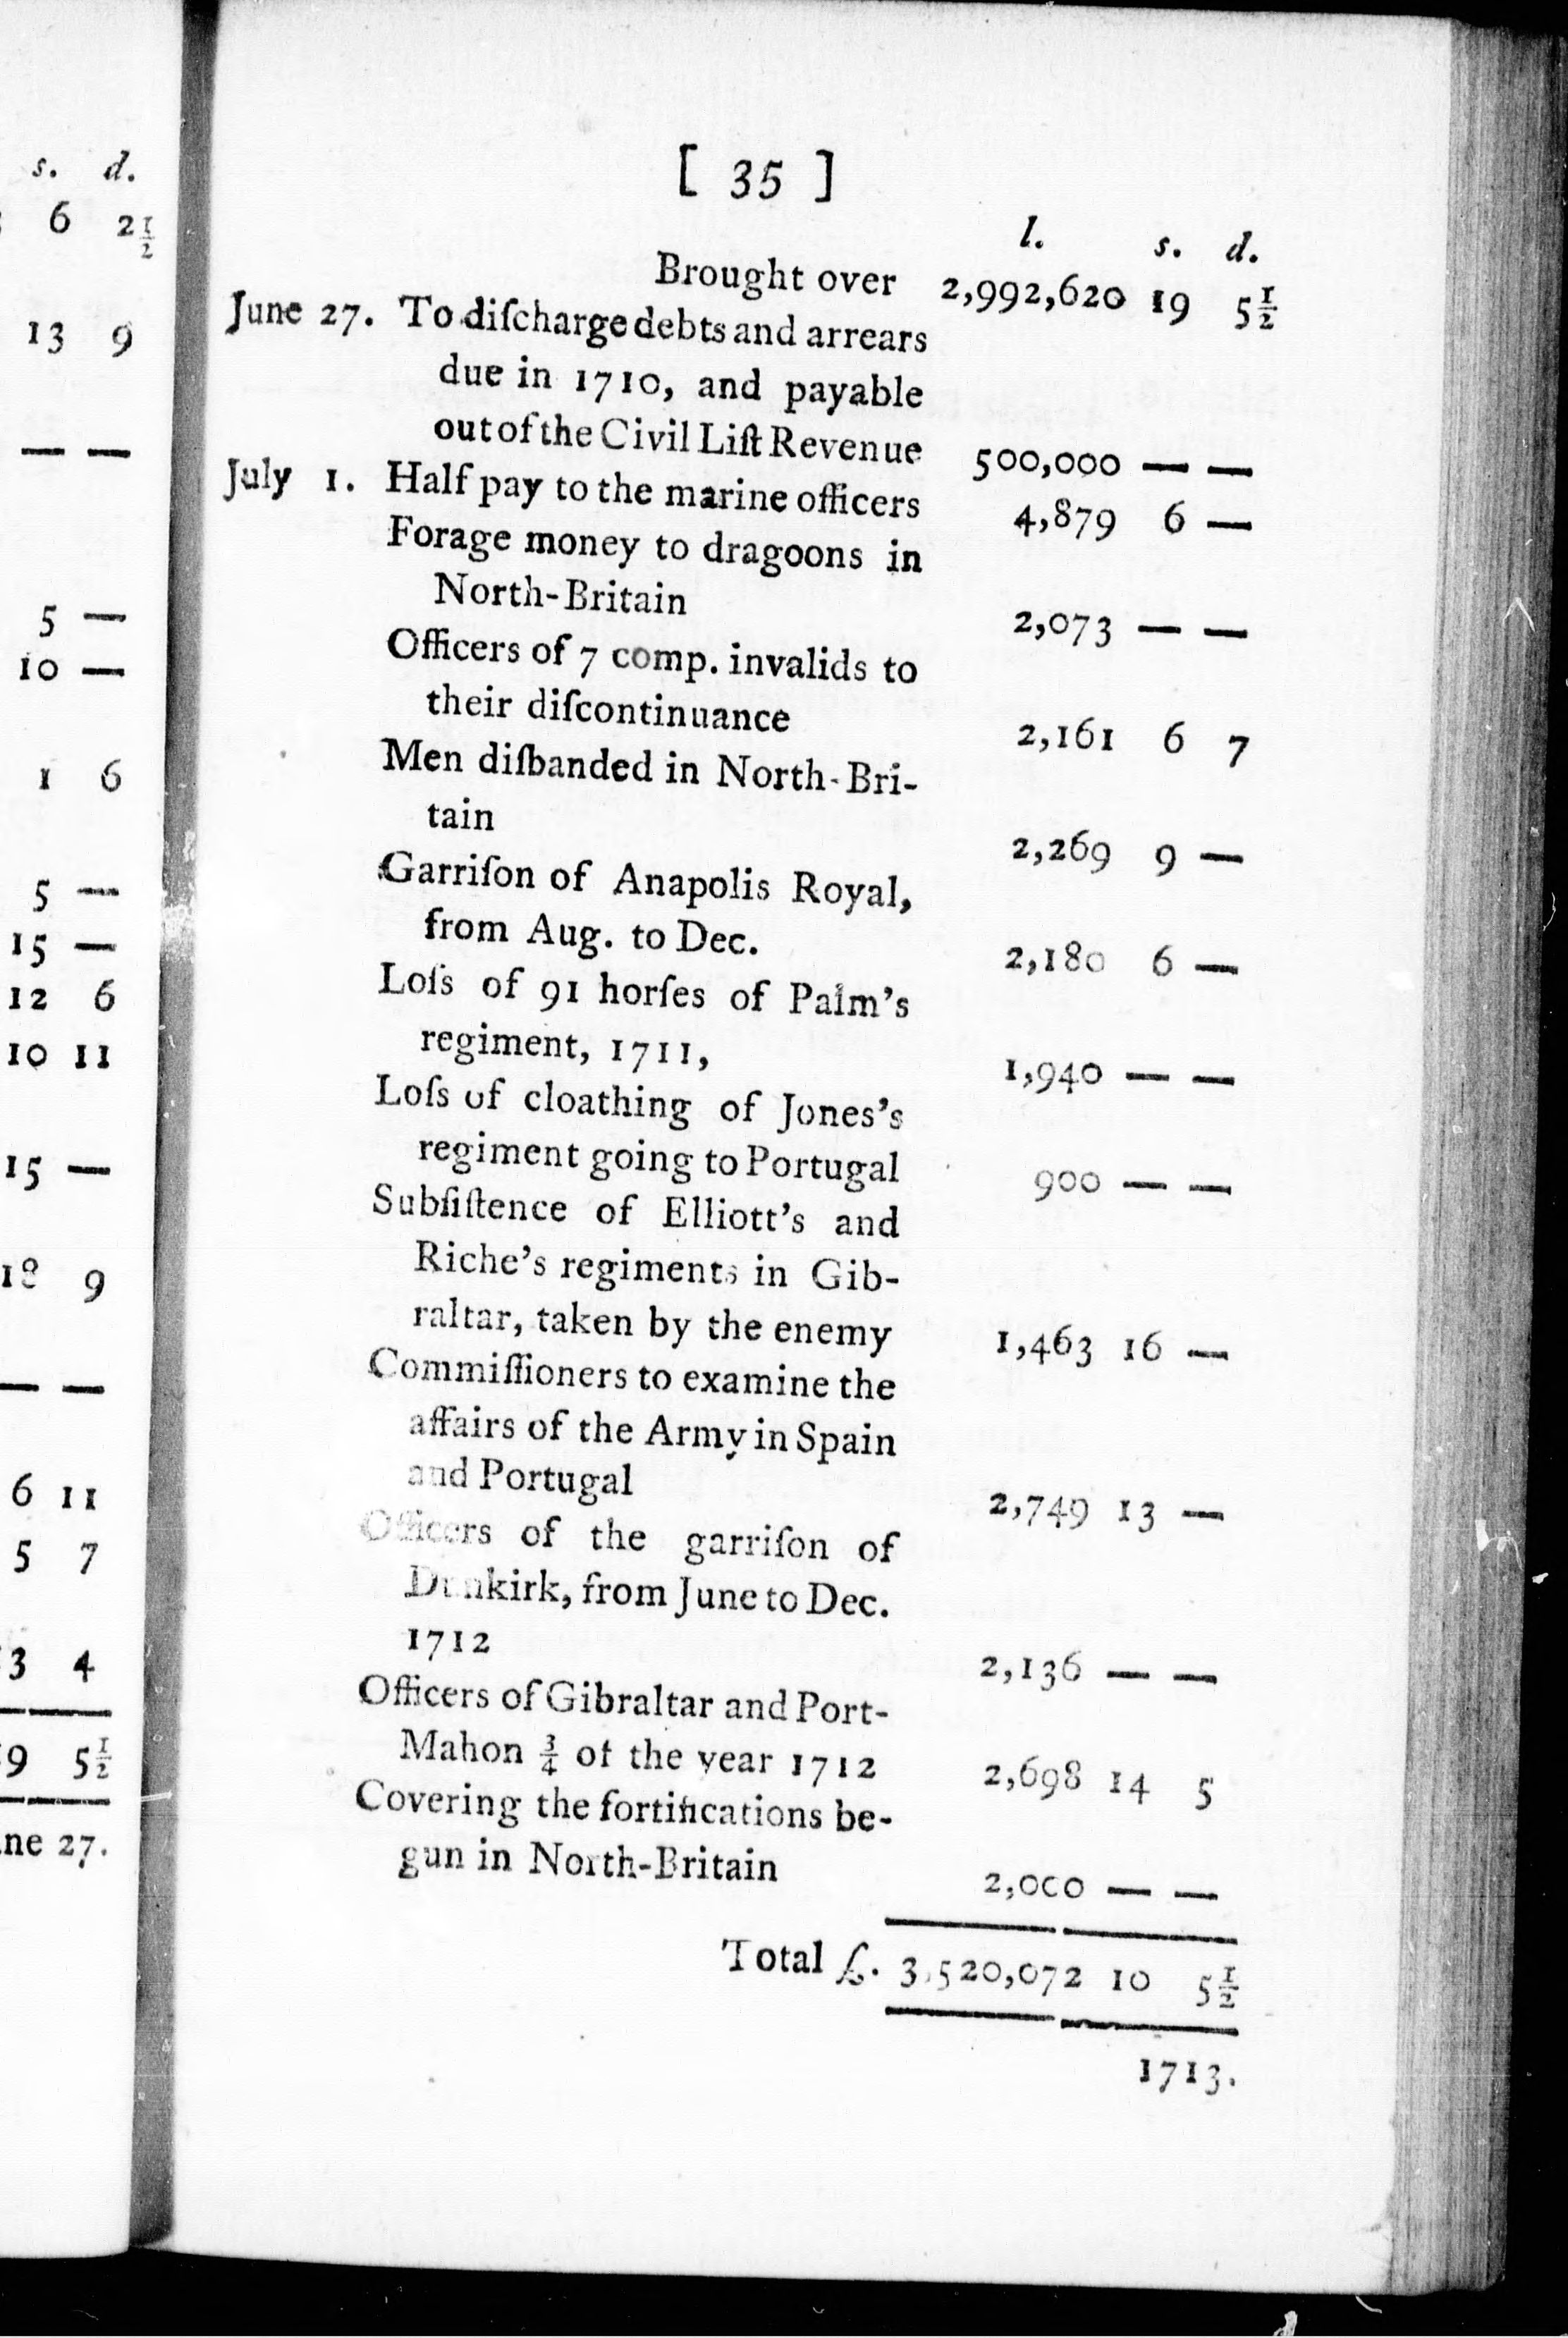 s. d.
6 2½
13 9
— —
5 —
10 —
1 6
5 —
15 —
12 6
10 11
15 —
18 9
— —
6 11
5 7
3 4
9 5½
ne 27.
[ 35 ]
l. s. d.
Brought over 2,992,620 19 5½
June 27. To diſcharge debts and arrears
due in 1710, and payable
out of the Civil Liſt Revenue 500,000 — —
July 1. Half pay to the marine officers 4,879 6 —
Forage money to dragoons in
North-Britain 2,073 — —
Officers of 7 comp. invalids to
their diſcontinuance 2,161 6 7
Men diſbanded in North-Bri-
tain 2,269 9 —
Garriſon of Anapolis Royal,
from Aug. to Dec. 2,180 6 —
Loſs of 91 horſes of Palm's
regiment, 1711, 1,940 — —
Loſs of cloathing of Jones's
regiment going to Portugal 900 — —
Subſiſtence of Elliott's and
Riche's regiments in Gib-
raltar, taken by the enemy 1,463 16 —
Commiſſioners to examine the
affairs of the Army in Spain
and Portugal 2,749 13 —
Officers of the garriſon of
Dunkirk, from June to Dec.
1712 2,136 — —
Officers of Gibraltar and Port-
Mahon ¾ of the year 1712 2,698 14 5
Covering the fortifications be-
gun in North-Britain 2,000 — —
Total £. 3,520,072 10 5½
1713.